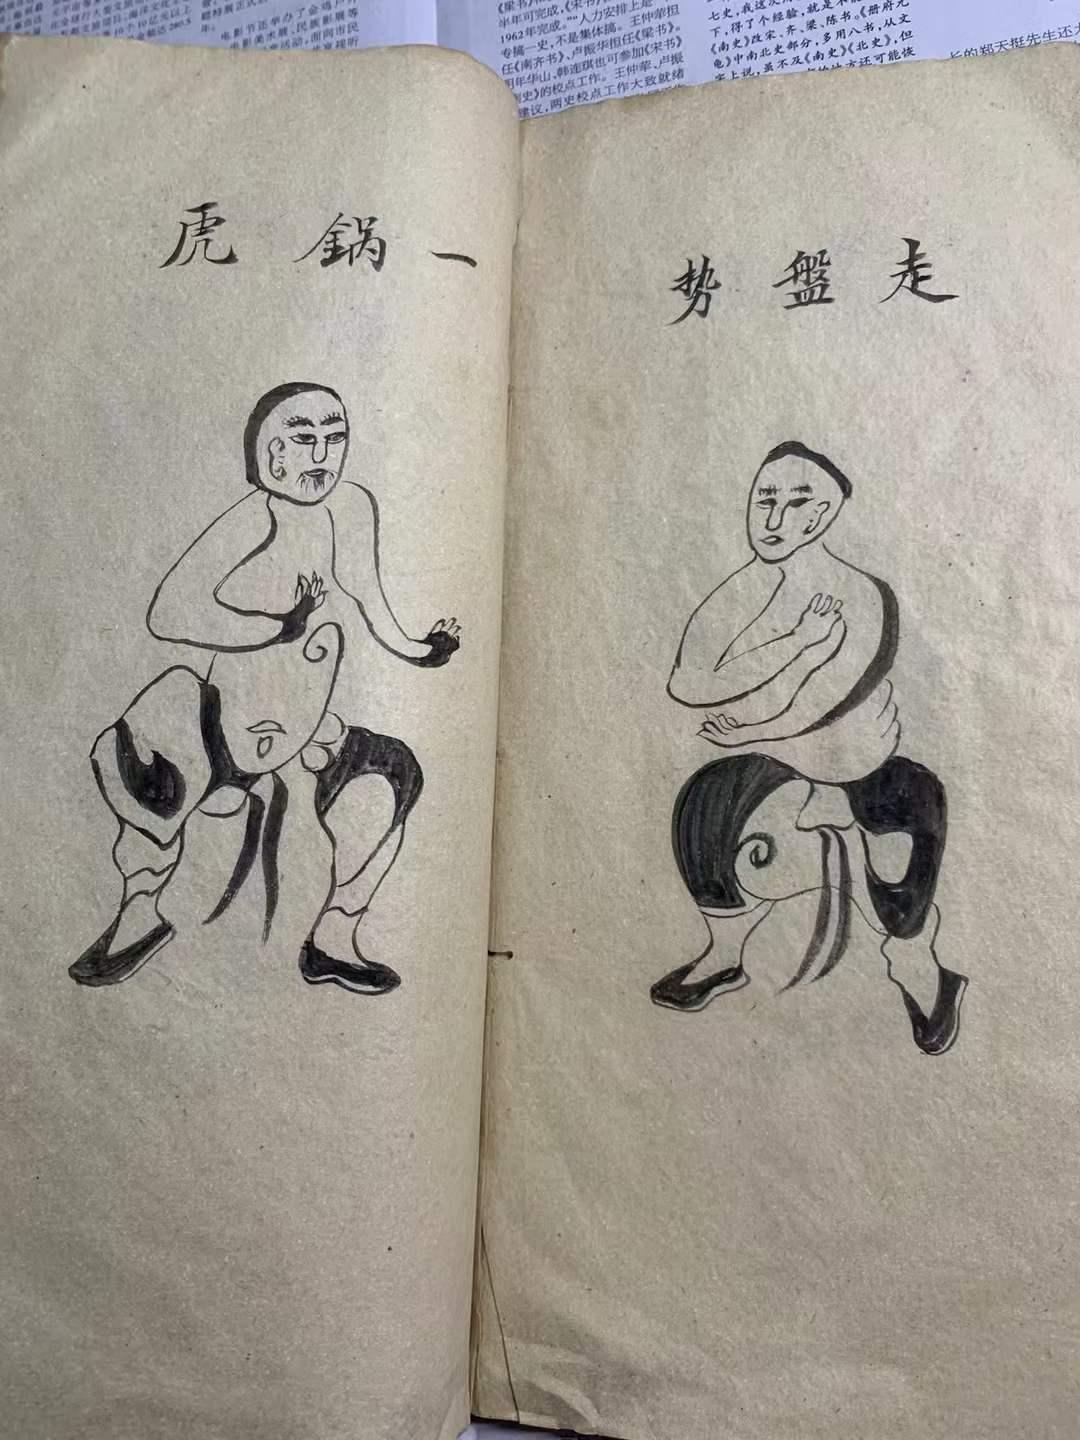 走盤势
一鍋虎
电影美术展、民族影展等
活动,面向市民
半年可完成,《宋书》
1962年完成。”“人力安排上是一
专搞一史,不是集体搞。王仲荦担
任《南齐书》、卢振华担任《梁书》。
明年华山,韩连琪也可参加《宋书》
史》的校点工作。王仲荦、卢振
建议,两史校点工作大致就绪
七史,我这次
下,得了个经验,就是不能
《南史》改宋、齐、梁、陈书。《册府元
龟》中南北史部分,多用八书,从文
字上说,虽不及《南史》《北史》,但
地方还可能恢
长的郑天挺先生还